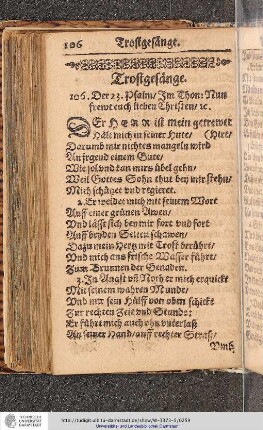 106 Trostgesänge.
Trostgesänge.
106. Der 23. Psalm/ Im Thon: Nun
frewt euch lieben Christen/ ec.
DEr HERR ist mein getrewer
Hält mich in seiner Hute/ (Hirt/
Darumb mir nichtes mangeln wird
An irgend einem Gute/
Wie sol und kan mirs übel gehn/
Weil Gottes Sohn thut bey mir stehn/
Mich schützet und regieret.
2. Er weidet mich mit seinem Wort
Auff einer grünen Awen/
Und lässt sich bey mir fort und fort
Auff beyden Seiten schawen/
Dazu mein Hertz mit Trost berührt/
Und mich ans frische Wasser führt/
Zum Brunnen der Genaden.
3. In Angst uñ Noth er mich erquickt
Mit seinem wahren Munde/
Und mir sein Hülff von oben schickt
Zur rechten Zeit und Stunde:
Er führt mich auch ohn unterlaß
An seiner Hand/ auff rechter Straß/
Umb
http://tudigit.ulb.tu-darmstadt.de/show/W-3373-5/0259
Universitäts- und Landesbibliothek Darmstadt